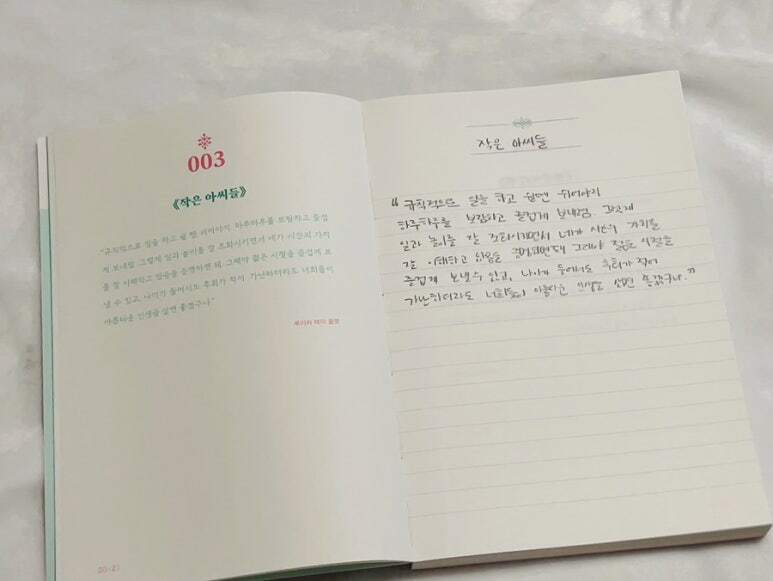 003
《작은 아씨들》
"규칙적으로 일을 하고 쉴 땐 쉬어야지. 하루하루를 보람차고 즐겁
게 보내렴. 그렇게 일과 놀이를 잘 조화시키면서 네가 시간의 가치
를 잘 이해하고 있음을 증명하면 돼. 그래야 젊은 시절을 즐겁게 보
낼 수 있고, 나이가 들어서도 후회가 적어. 가난하더라도 너희들이
아름다운 인생을 살면 좋겠구나."
루이자 메이 올콧
20·21
작은 아씨들
"규칙적으로 일을 하고 쉴땐 쉬어야지
하루하루를 보람차고 즐겁게 보내렴. 그렇게
일과 놀이를 잘 조화시키면서 네가 시간의 가치를
잘 이해하고 있음을 증명하면돼. 그래야 젊은 시절을
즐겁게 보낼수 있고, 나이가 들어서도 후회가 적어
가난하더라도 너희들이 아름다운 인생을 살면 좋겠구나."